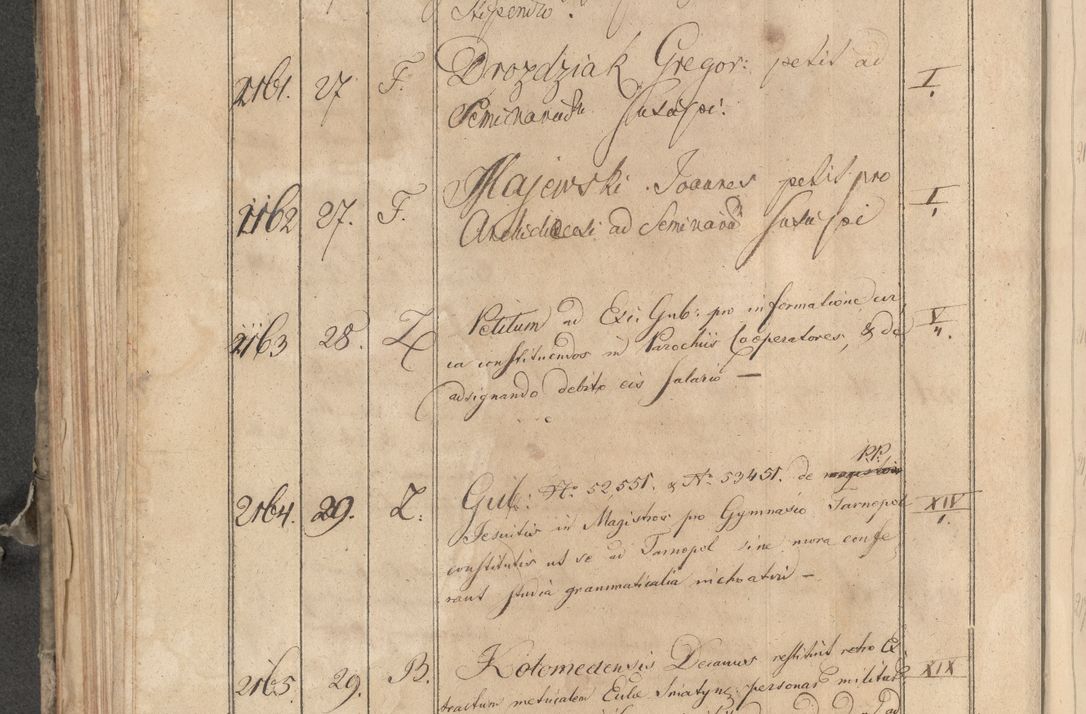 Stipendio.
2161. 27 F. Drozdziak Gregor: petit ad I.
Seminarium Sususpi.
2162 27. F. Majewski Joannes petit pro I.
Archidioecesi ad Seminariu Sususpi
2163 28. Z Petitum ad Exc. Gub: pro informatione cir V.
ca constituendos in Parochiis Cooperatores, & de
adsignando debito eis salario —
P.P.
2164. 29. Z. Gub: No 52,551. & No 53451. de XIV
Jesuitis in Magistros pro Gymnasio Tarnopol 1.
constitutis ut se ad Tarnopol sine mora confe
rant studia grammaticalia inchoaturi —
2165. 29. B. Kolomedensis Decanus restituit retro Ex XIX
tractum metricalem Eccle Sniatyn: personar militar